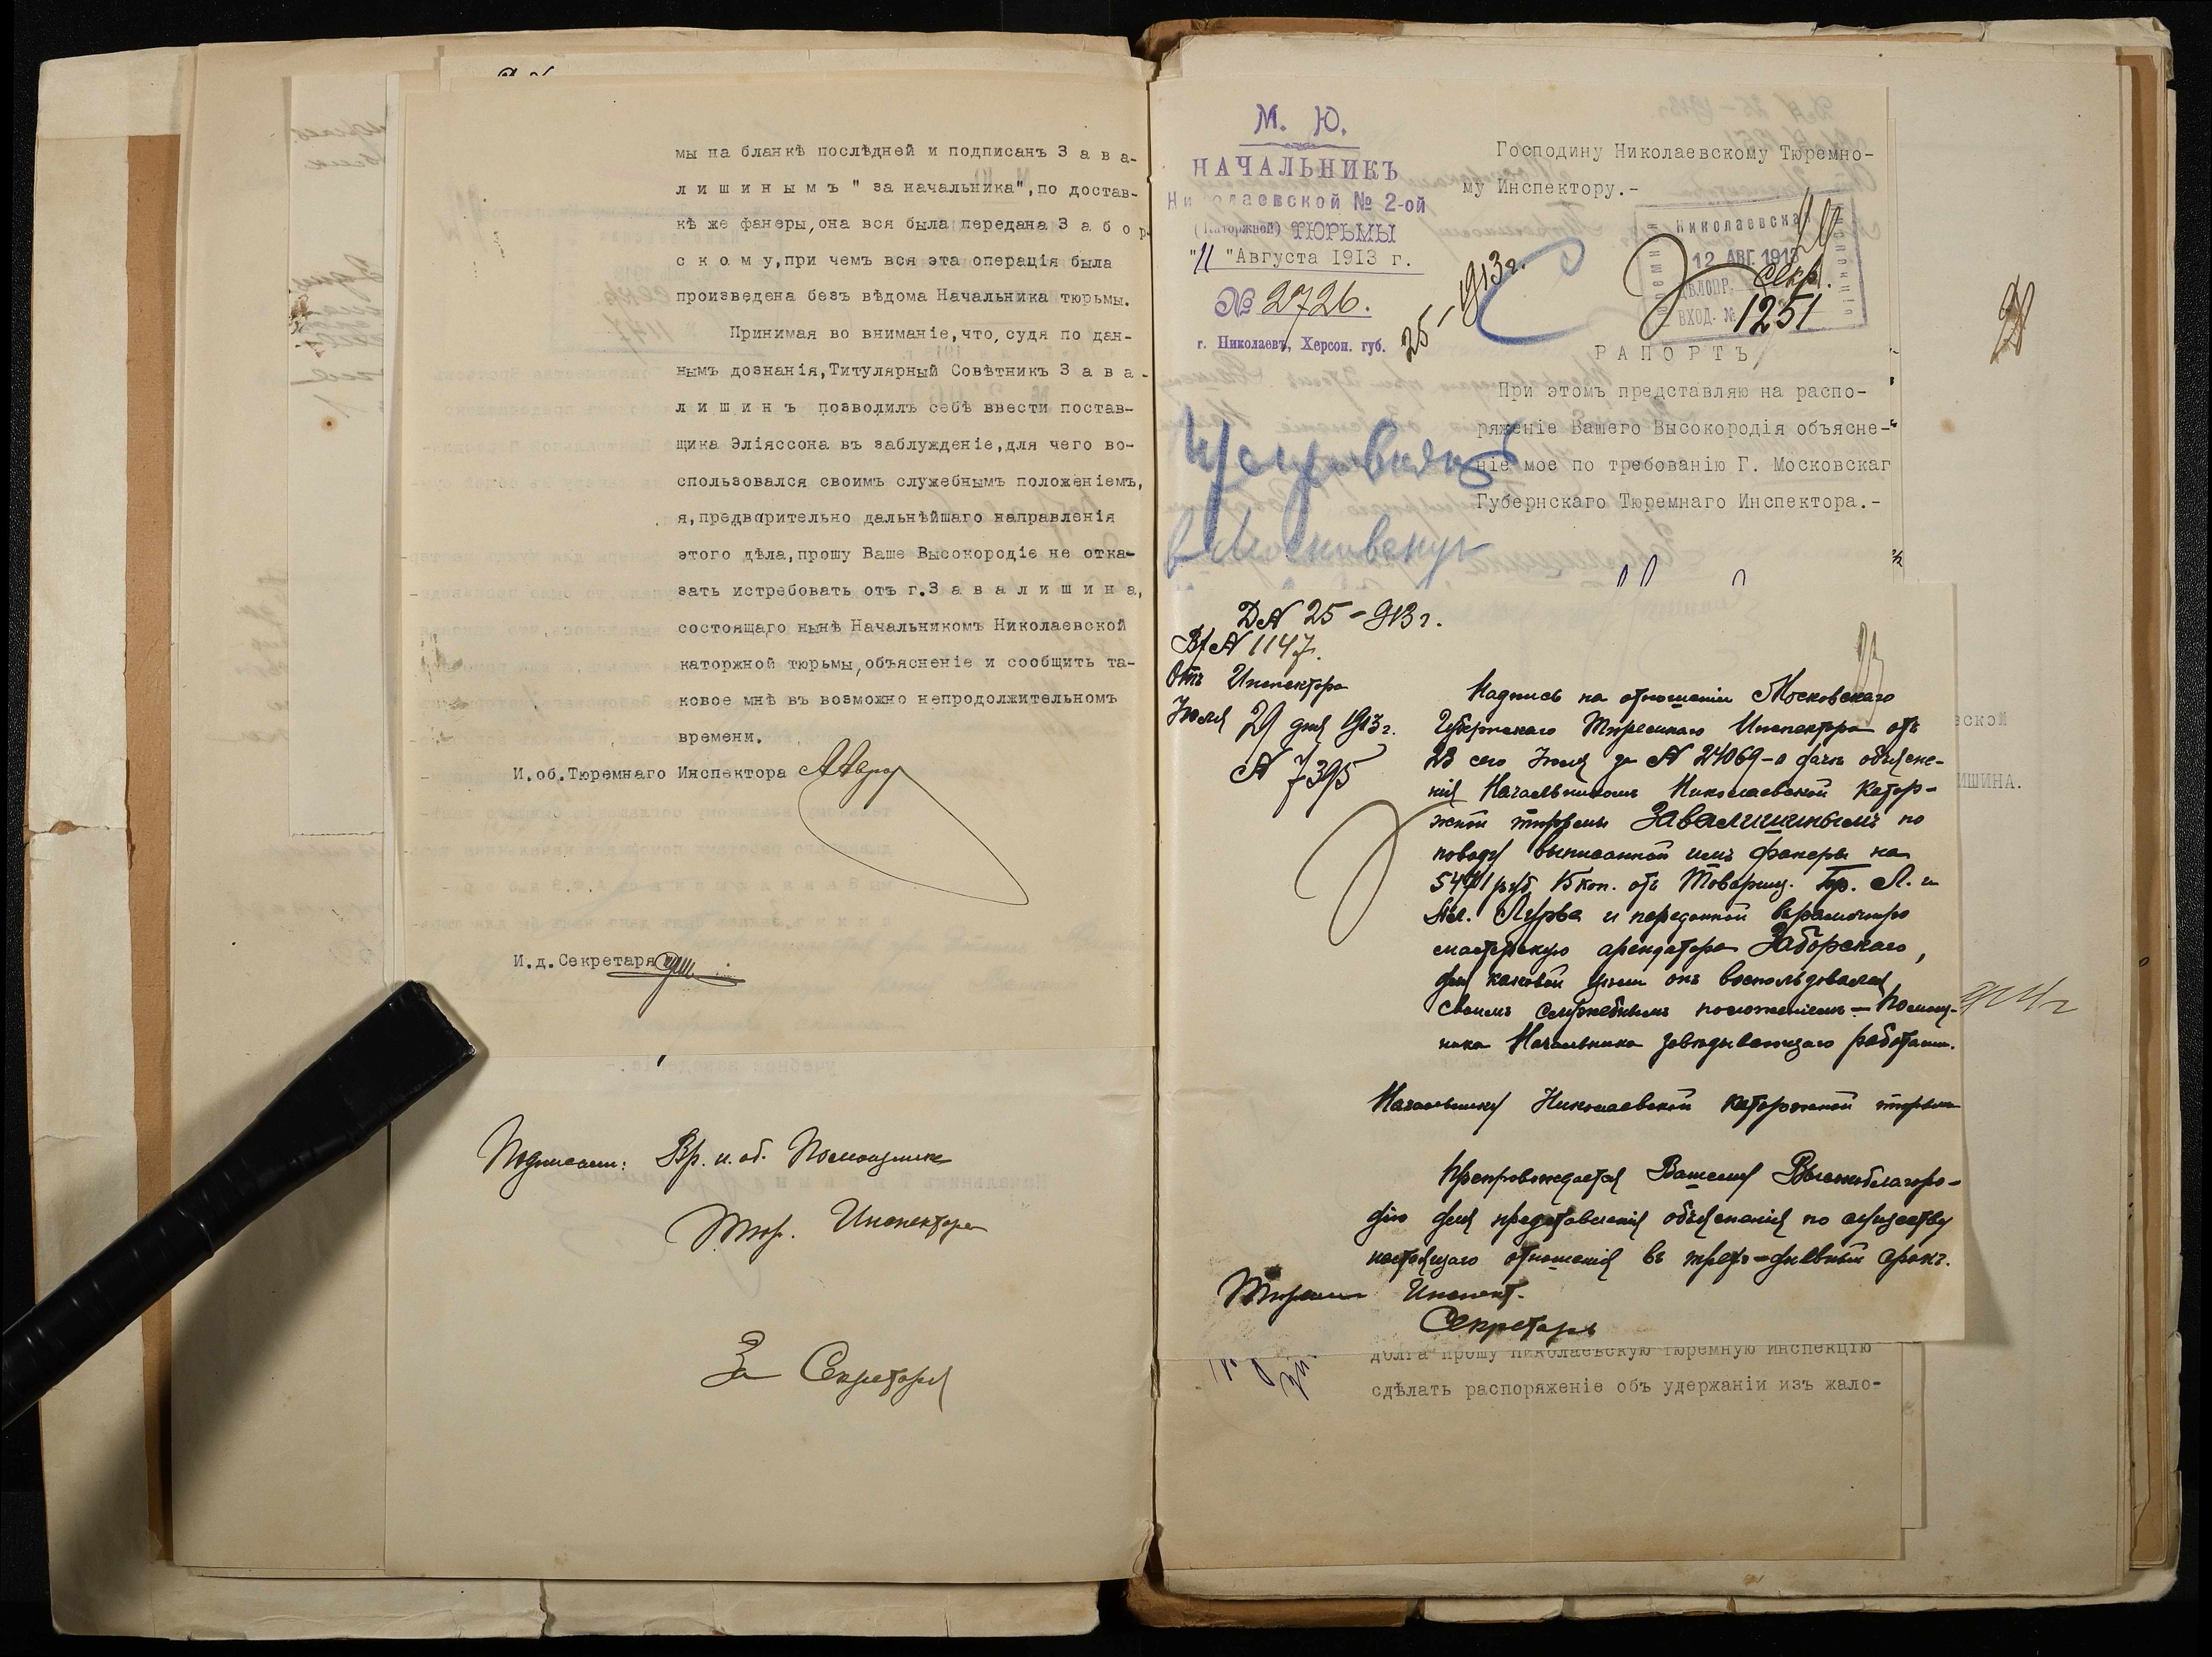 мы на бланкѣ послѣдней и подписанъ З а в а-
л и ш и н ы м ъ " за начальника", по достав-
кѣ же фанеры, она вся была передана З а б о р
с к о м у, при чемъ вся эта операція была
произведена безъ вѣдома Начальника тюрьмы.
Принимая во вниманіе, что, судя по дан-
нымъ дознанія, Титулярный Совѣтникъ З а в а -
л и ш и н ъ позволилъ себѣ ввести постав-
щика Эліяссона въ заблужденіе, для чего во-
спользовался своимъ служебнымъ положеніемъ,
я, предварительно дальнѣйшаго направленія
этого дѣла, прошу Ваше Высокородіе не отка-
зать истребовать отъ г. З а в а л и ш и н а,
состоящаго нынѣ Начальникомъ Николаевской
каторжной тюрьмы, объясненіе и сообщить та-
ковое мнѣ въ возможно непродолжительномъ
времени.
И.об.Тюремнаго Инспектора
И.д.Секретаря
Подписали: Вр. и. об. Помощника
Тюр. Инспектора
За Секретаря
М. Ю.
НАЧАЛЬНИКЪ
Николаевской № 2-ой
(Каторжной) ТЮРЬМЫ
"11 "Августа 1913 г.
№ 2726.
г. Николаевъ, Херсон. губ.
25 - 913 г.
Господину Николаевскому Тюремно-
му Инспектору.-
Николаевская
12 АВГ. 1913
ДѢЛОПР. секр.
ВХОД. № 1251
Р А П О Р Т Ъ
При этомъ представляю на распо-
ряженіе Вашего Высокородія объясне-
ніе мое по требованію Г. Московскаг
Губернскаго Тюремнаго Инспектора.-
Д № 25 - 913 г.
Вх № 1147.
Отъ Инспектора
Іюля 29 дня 1913 г.
№ 7395
Надпись на отношеніи Московскаго
Губернскаго Тюремнаго Инспектора отъ
23 сего Іюля за № 24069 - о дачѣ объясне-
нія Начальникомъ Николаевской Катор-
жной тюрьмы Завалишинымъ по
поводу выписанной имъ фанеры на
руб 15 коп. отъ Товарищ. Бр. Л. и
Лурье и переданной
мастерскую арендатора Заборскаго,
для каковой цѣли онъ воспользовался
своимъ служебнымъ положеніемъ - Помощ-
ника Начальника завѣдывающаго работами.
Начальнику Николаевской каторжной тюрьмы
Препровождается Вашему Высокоблагоро-
дію для представленія объясненія по существу
настоящаго отношенія въ трехъ-дневный срокъ.
Тюремн Инспект.
Секретарь
долга прошу Николаевскую Тюремную Инспекцію
сдѣлать распоряженіе объ удержаніи изъ жало-
вской
ИШИНА.